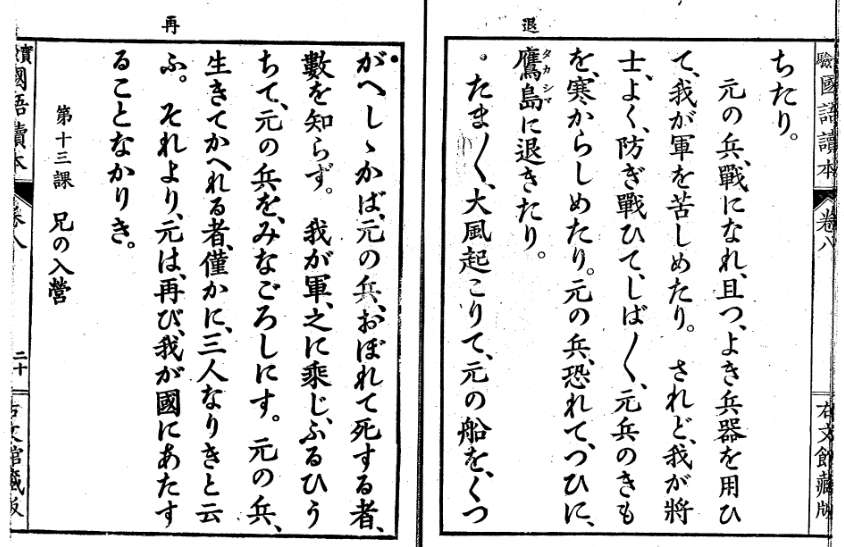 退
驗國語讀本
卷八
右文館藏版
ちたり。
元の兵、戰になれ、且つ、よき兵器を用ひ
て、我が軍を苦しめたり。されど、我が將
士、よく、防ぎ戰ひて、しば〱、元兵のきも
を、寒からしめたり。元の兵、恐れて、つひに、
鷹島に退きたり。
タカシマ
。たま〱、大風起こりて、元の船を、くつ
再
がへしゝかば、元の兵、おぼれて死する者、
數を知らず。我が軍、之に乘じ、ふるひう
ちて、元の兵を、みなごろしにす。元の兵、
生きてかへれる者、僅かに、三人なりきと云
ふ。それより、元は、再び、我が國にあたす
ることなかりき。
第十三課 兄の入營
實國語讀本
卷八
二十
右文館藏版